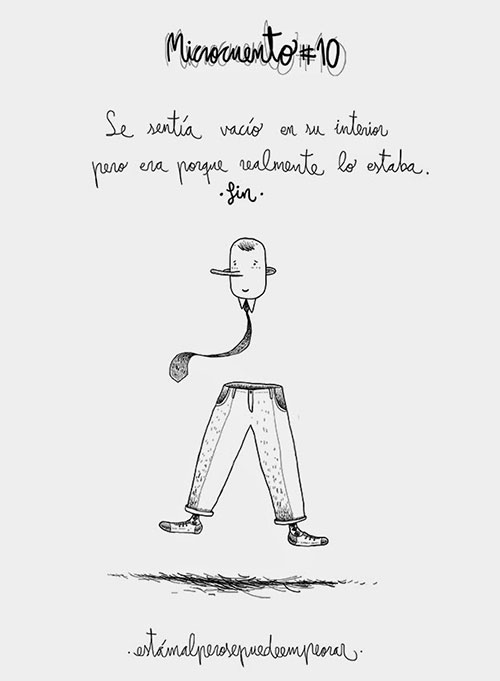 Microcuento #10
Se sentía vacío en su interior
pero era porque realmente lo estaba.
·fin·
·estámalperosepuedeempeorar·